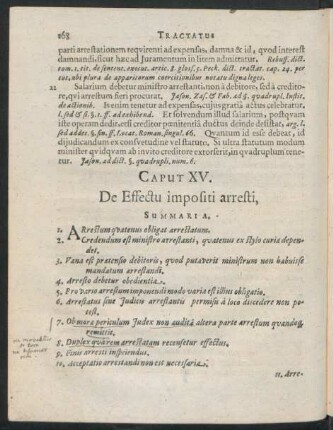 168 TRACTATUS
parti arrestationem requirenti ad expensas, damna & id, quod interest
damnandi, sicut hæc ad Juramentum in litem admittitur. Rebuff. dict.
tom. 1. tit. de senent. execut. artic. 5. glos. 5. Peck. dict. tractat. cap. 24. per
tot, ubi plura de apparitorum coercionibus notatu digna leges.
22 Salarium debetur ministro arrestanti, non à debitore, sed à credito-
re, qui arrestum fieri procurat, Jason, Zas. & Fab. ad §. quadrupl. Instit.
de actionib. Item in tenetur ad expensas, cujus gratiâ actus celebratur,
l. sed & si. §. 1. ff. ad exhibend. Et solvendum illud salarium, postquam
iste operam dedit, etsi creditor pœnitentiâ ductus deinde desistat, arg. l.
sed addes §. sin. ff. Locat. Roman. singul. 66. Quantum id esse debeat, id
discernendum ex consuetudine vel statuto. Si ultra statutum modum
minister quidquam ab invito creditore extorserit, in quadruplum tene-
tur. Jason. ad dict. §. quadrupli. num. 6.
CAPUT XV.
De Effectu impositi arresti,
SUMMARIA.
1. ARrestum quatenus obligat arrestatum.
2. Credendum est ministro arrestanti, quatenus ex stylo curiæ depen-
det.
3. Vana est prætensio debitoris, quod putaverit ministrum non habuisse
mandatum arrestandi.
4. Arresto debetur obedientia.
5. Pro vario arrestum imponendi modo varia est illius obligatio.
6. Arrestatus sine Judicis arrestantis permisu à loco discedere non po-
test.
7. Ob mora periculum Judex non auditâ altera parte arrestum quandoq;
remittit.
8. Duplex quorum arrestatam recensetur effectus.
9. Finis arresti inspiciendus.
10. Acceptatio arrestandi non est necessaria.
11. Arre-